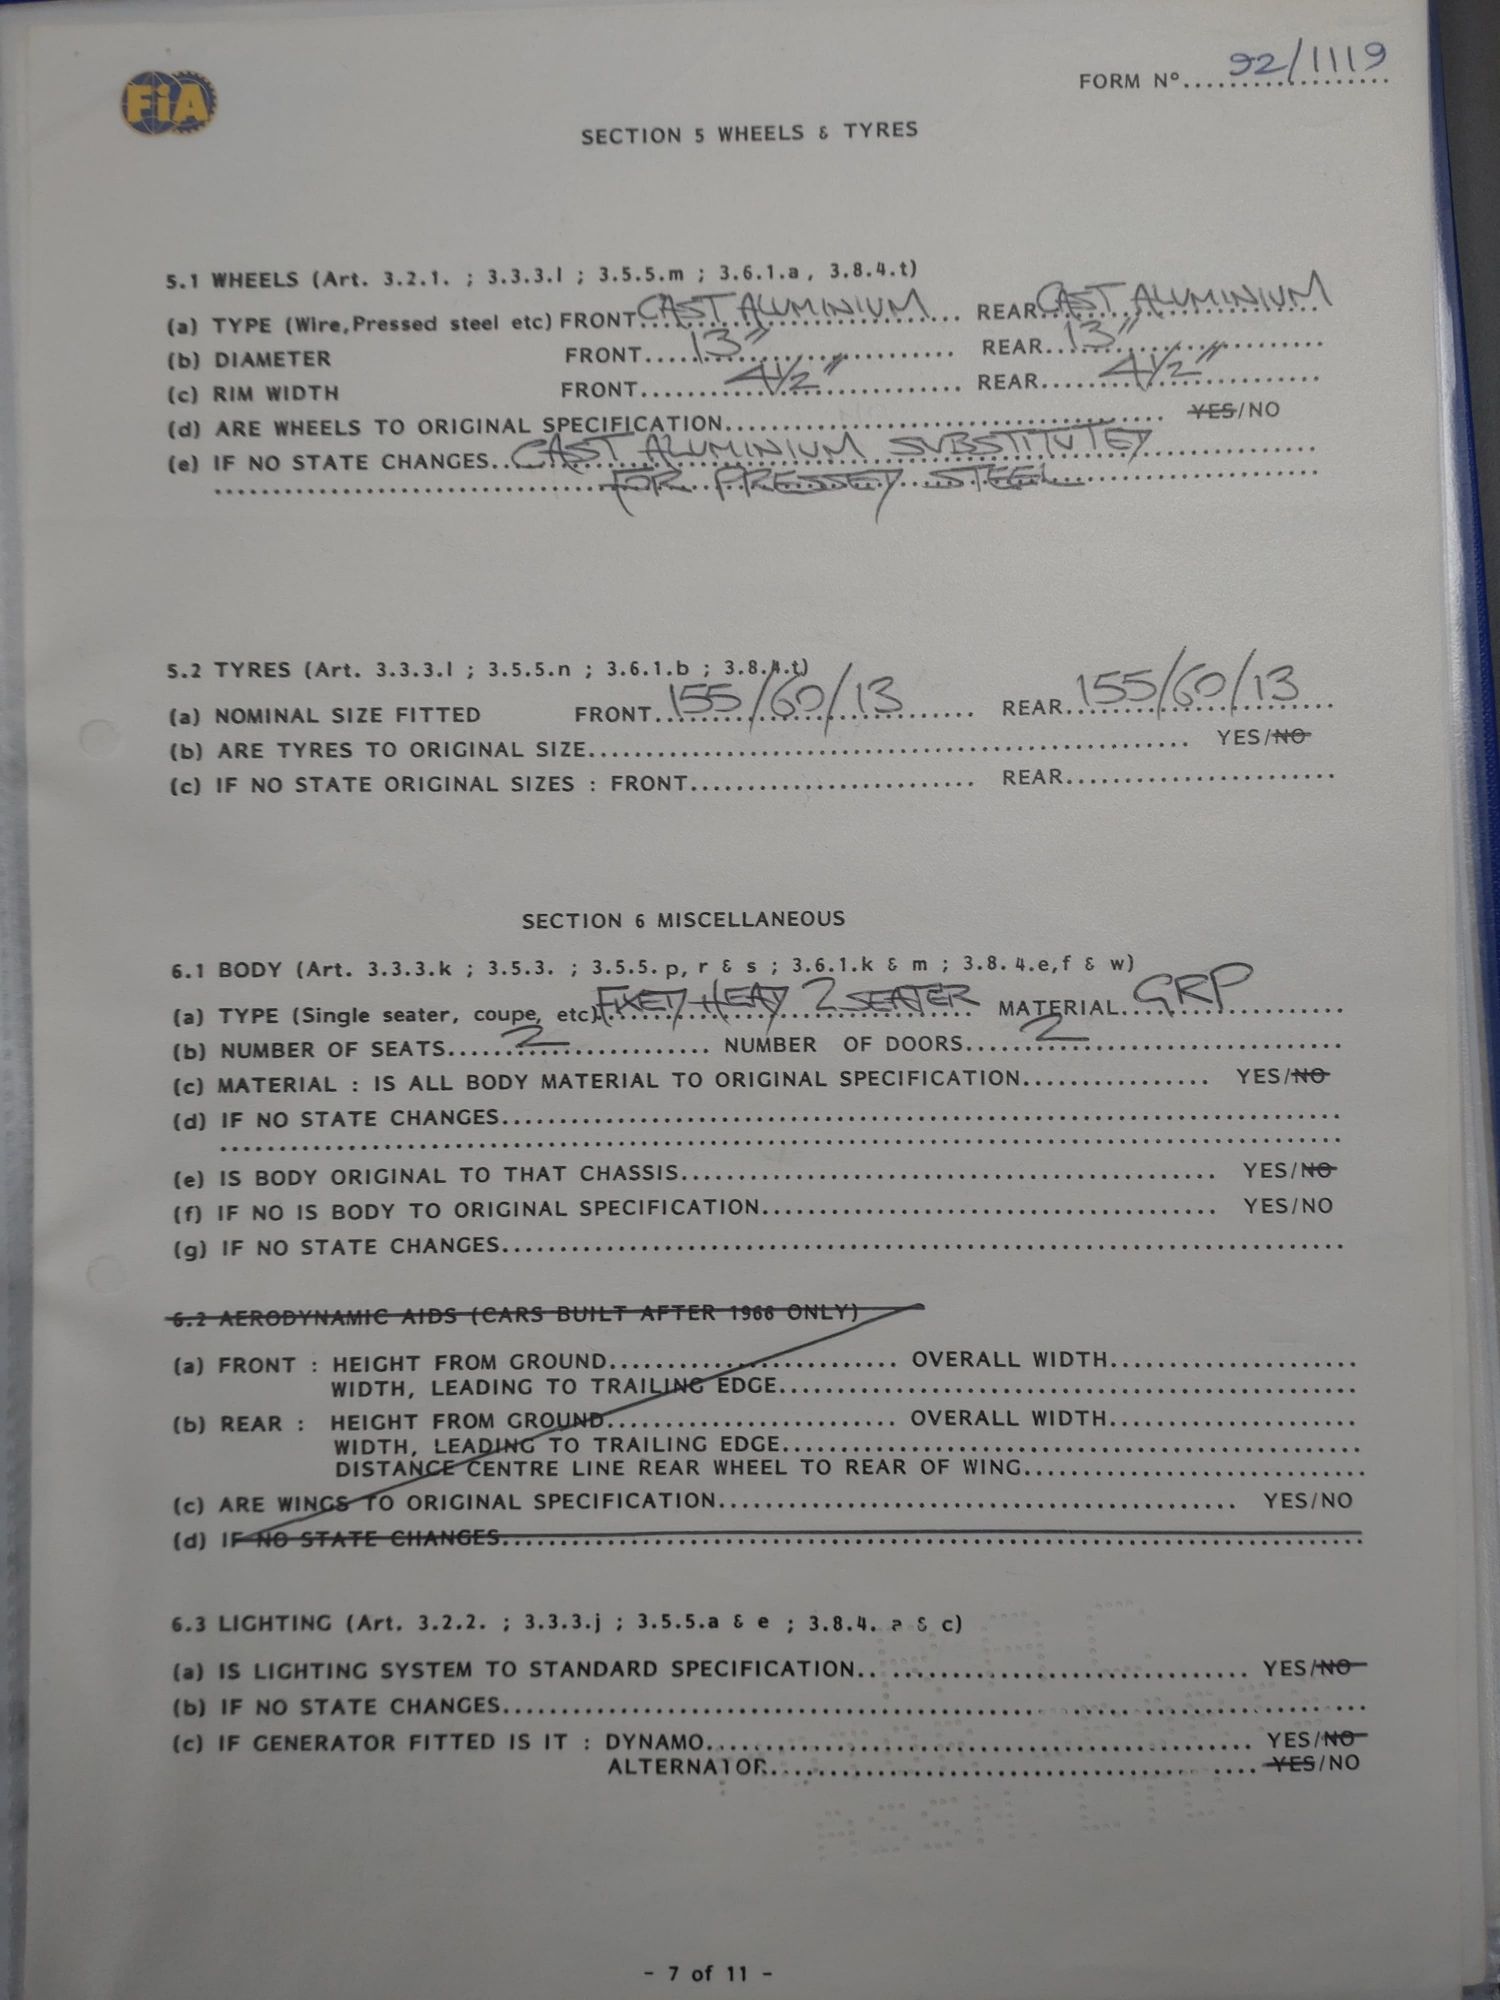 FiA
FORM Nº.................. 92/1119
SECTION 5 WHEELS & TYRES
5.1 WHEELS (Art. 3.2.1. ; 3.3.3.l ; 3.5.5.m ; 3.6.1.a, 3.8.4.t)
(a) TYPE (Wire,Pressed steel etc) FRONT CAST ALUMINIUM REAR CAST ALUMINIUM
(b) DIAMETER FRONT 13" REAR 13"
(c) RIM WIDTH FRONT 4½" REAR 4½"
(d) ARE WHEELS TO ORIGINAL SPECIFICATION YES/NO
(e) IF NO STATE CHANGES CAST ALUMINIUM SUBSTITUTED
FOR PRESSED STEEL
5.2 TYRES (Art. 3.3.3.l ; 3.5.5.n ; 3.6.1.b ; 3.8.4.t)
(a) NOMINAL SIZE FITTED FRONT 155/60/13 REAR 155/60/13
(b) ARE TYRES TO ORIGINAL SIZE YES/NO
(c) IF NO STATE ORIGINAL SIZES : FRONT REAR
SECTION 6 MISCELLANEOUS
6.1 BODY (Art. 3.3.3.k ; 3.5.3. ; 3.5.5. p, r & s ; 3.6.1.k & m ; 3.8.4.e,f & w)
(a) TYPE (Single seater, coupe, etc) FIXED HEAD 2 SEATER MATERIAL GRP
(b) NUMBER OF SEATS 2 NUMBER OF DOORS 2
(c) MATERIAL : IS ALL BODY MATERIAL TO ORIGINAL SPECIFICATION YES/NO
(d) IF NO STATE CHANGES
(e) IS BODY ORIGINAL TO THAT CHASSIS YES/NO
(f) IF NO IS BODY TO ORIGINAL SPECIFICATION YES/NO
(g) IF NO STATE CHANGES
6.2 AERODYNAMIC AIDS (CARS BUILT AFTER 1966 ONLY)
(a) FRONT : HEIGHT FROM GROUND OVERALL WIDTH
WIDTH, LEADING TO TRAILING EDGE
(b) REAR : HEIGHT FROM GROUND OVERALL WIDTH
WIDTH, LEADING TO TRAILING EDGE
DISTANCE CENTRE LINE REAR WHEEL TO REAR OF WING
(c) ARE WINGS TO ORIGINAL SPECIFICATION YES/NO
(d) IF NO STATE CHANGES
6.3 LIGHTING (Art. 3.2.2. ; 3.3.3.j ; 3.5.5.a & e ; 3.8.4. a & c)
(a) IS LIGHTING SYSTEM TO STANDARD SPECIFICATION YES/NO
(b) IF NO STATE CHANGES
(c) IF GENERATOR FITTED IS IT : DYNAMO YES/NO
ALTERNATOR YES/NO
- 7 of 11 -